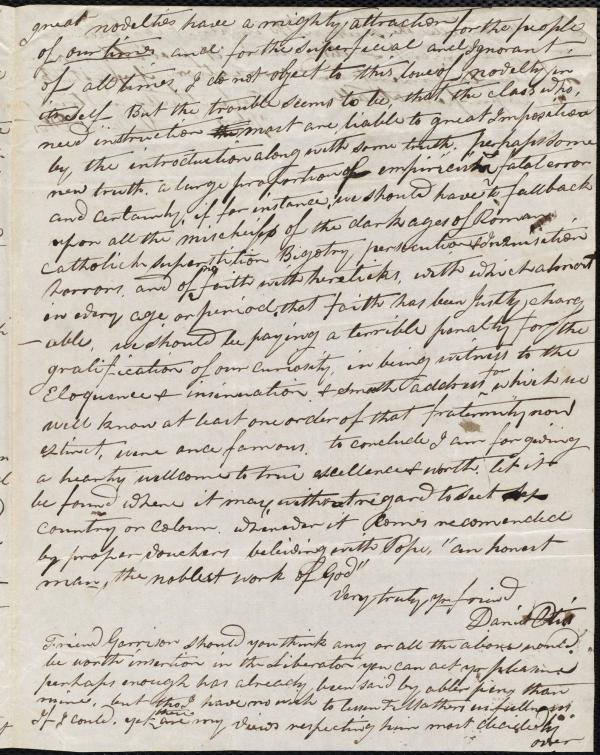 great novelties have a mighty attraction for the people
of our time, and for the superficial and Ignorant,
of all times, I do not object to this love of novelty in
itself But the trouble seems to be, that the class who,
need instruction most are liable to great Imposition
by, the introduction along with some truth, perhaps some
new truth, a large proportion of empiricism & fatal error
and certainly, if for instance, we should have to fall back
upon all the mischiefs of the dark ages of Roman
Catholick superstition Bigotry persecution & Inquisition
horrors, and of faith with hereticks, with which almost
in every age or period, that faith has been Justly charg
-able, we should be paying a terrible penalty for the
gratification of our curiosity, in being witness to the
Eloquence & insinuation & smooth address for which we
well know at least one order of that fraternity now
extinct, were once famous. to conclude I am for giving
a hearty wellcome to true excellence & worth, let it
be found where it may without regard to sect sex
country or colour. whenever it Comes recomended
by proper vouchers believing with Pope, "an honest
man, the noblest work of God"
Very truly yr friend
Daniel Otis
Friend Garrison should you think any or all the above would
be worth insertion in the Liberator you can act yr pleasure
perhaps enough has already been said by abler pens than
mine, but tho I have no wish to lessen F. Mathers usefulness
If I could, yet these are my views respecting him most decidedly
over